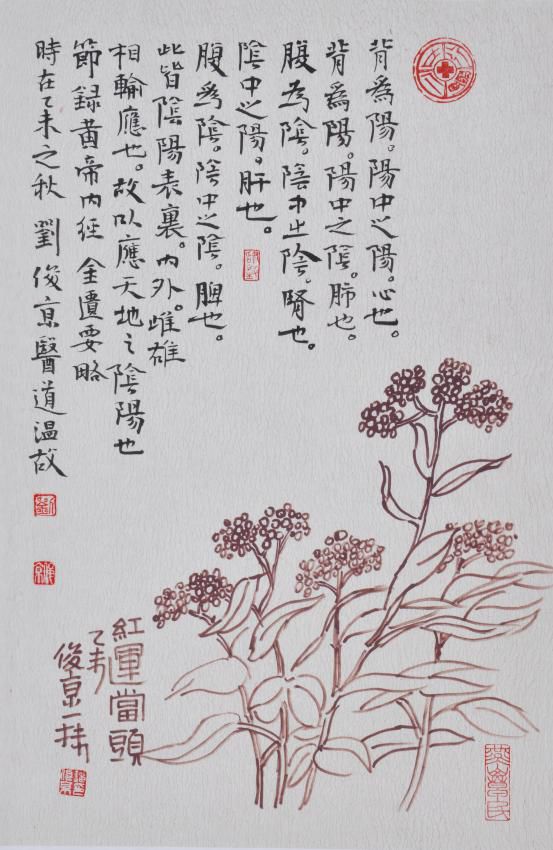 背為陽。陽中之陽。心也。
背為陽。陽中之陰。肺也。
腹為陰。陰中之陰。腎也。
陰中之陽。肝也。
腹為陰。陰中之陰。脾也。
此皆陰陽表裏。內外。雌雄
相輸應也。故以應天地之陰陽也
節録黃帝內經 金匱要略
時在乙未之秋 劉俊京醫道溫故
紅運當頭
乙未
俊京一抹